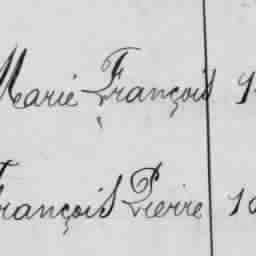 Marie François
François Pierre